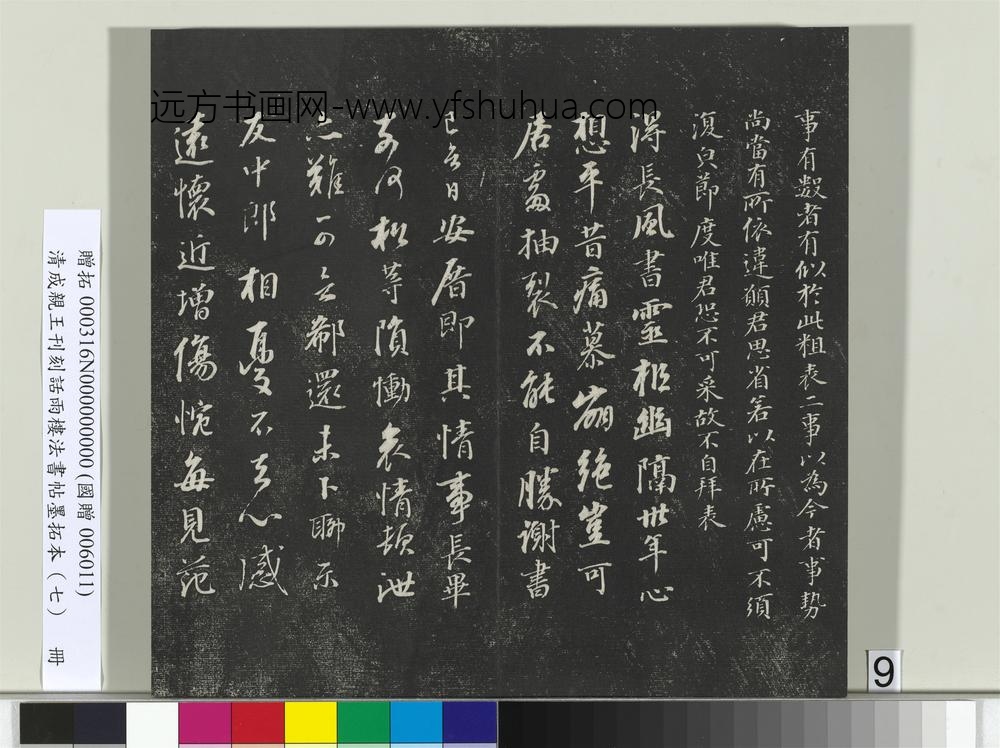 事有數者有似於此粗表二事以為今者事勢
尚當有所依違願君思省若以在所慮可不須
復只節度唯君恐不可采故不自拜表
得長風書靈柩幽隔卅年心
想平昔痛慕崩絕豈可
居處抽裂不能自勝謝書
已云日安厝即其情事長畢
奈何松等隕慟哀情頓泄
亦難可言郗還未下聊示
友中郎相憂不去心感
遠懷近增傷惋每見范
远方书画网-www.yfshuhua.com
贈拓 000316N000000000(國贈 006011)
清成親王刊刻話雨樓法書帖墨拓本(七) 冊
9